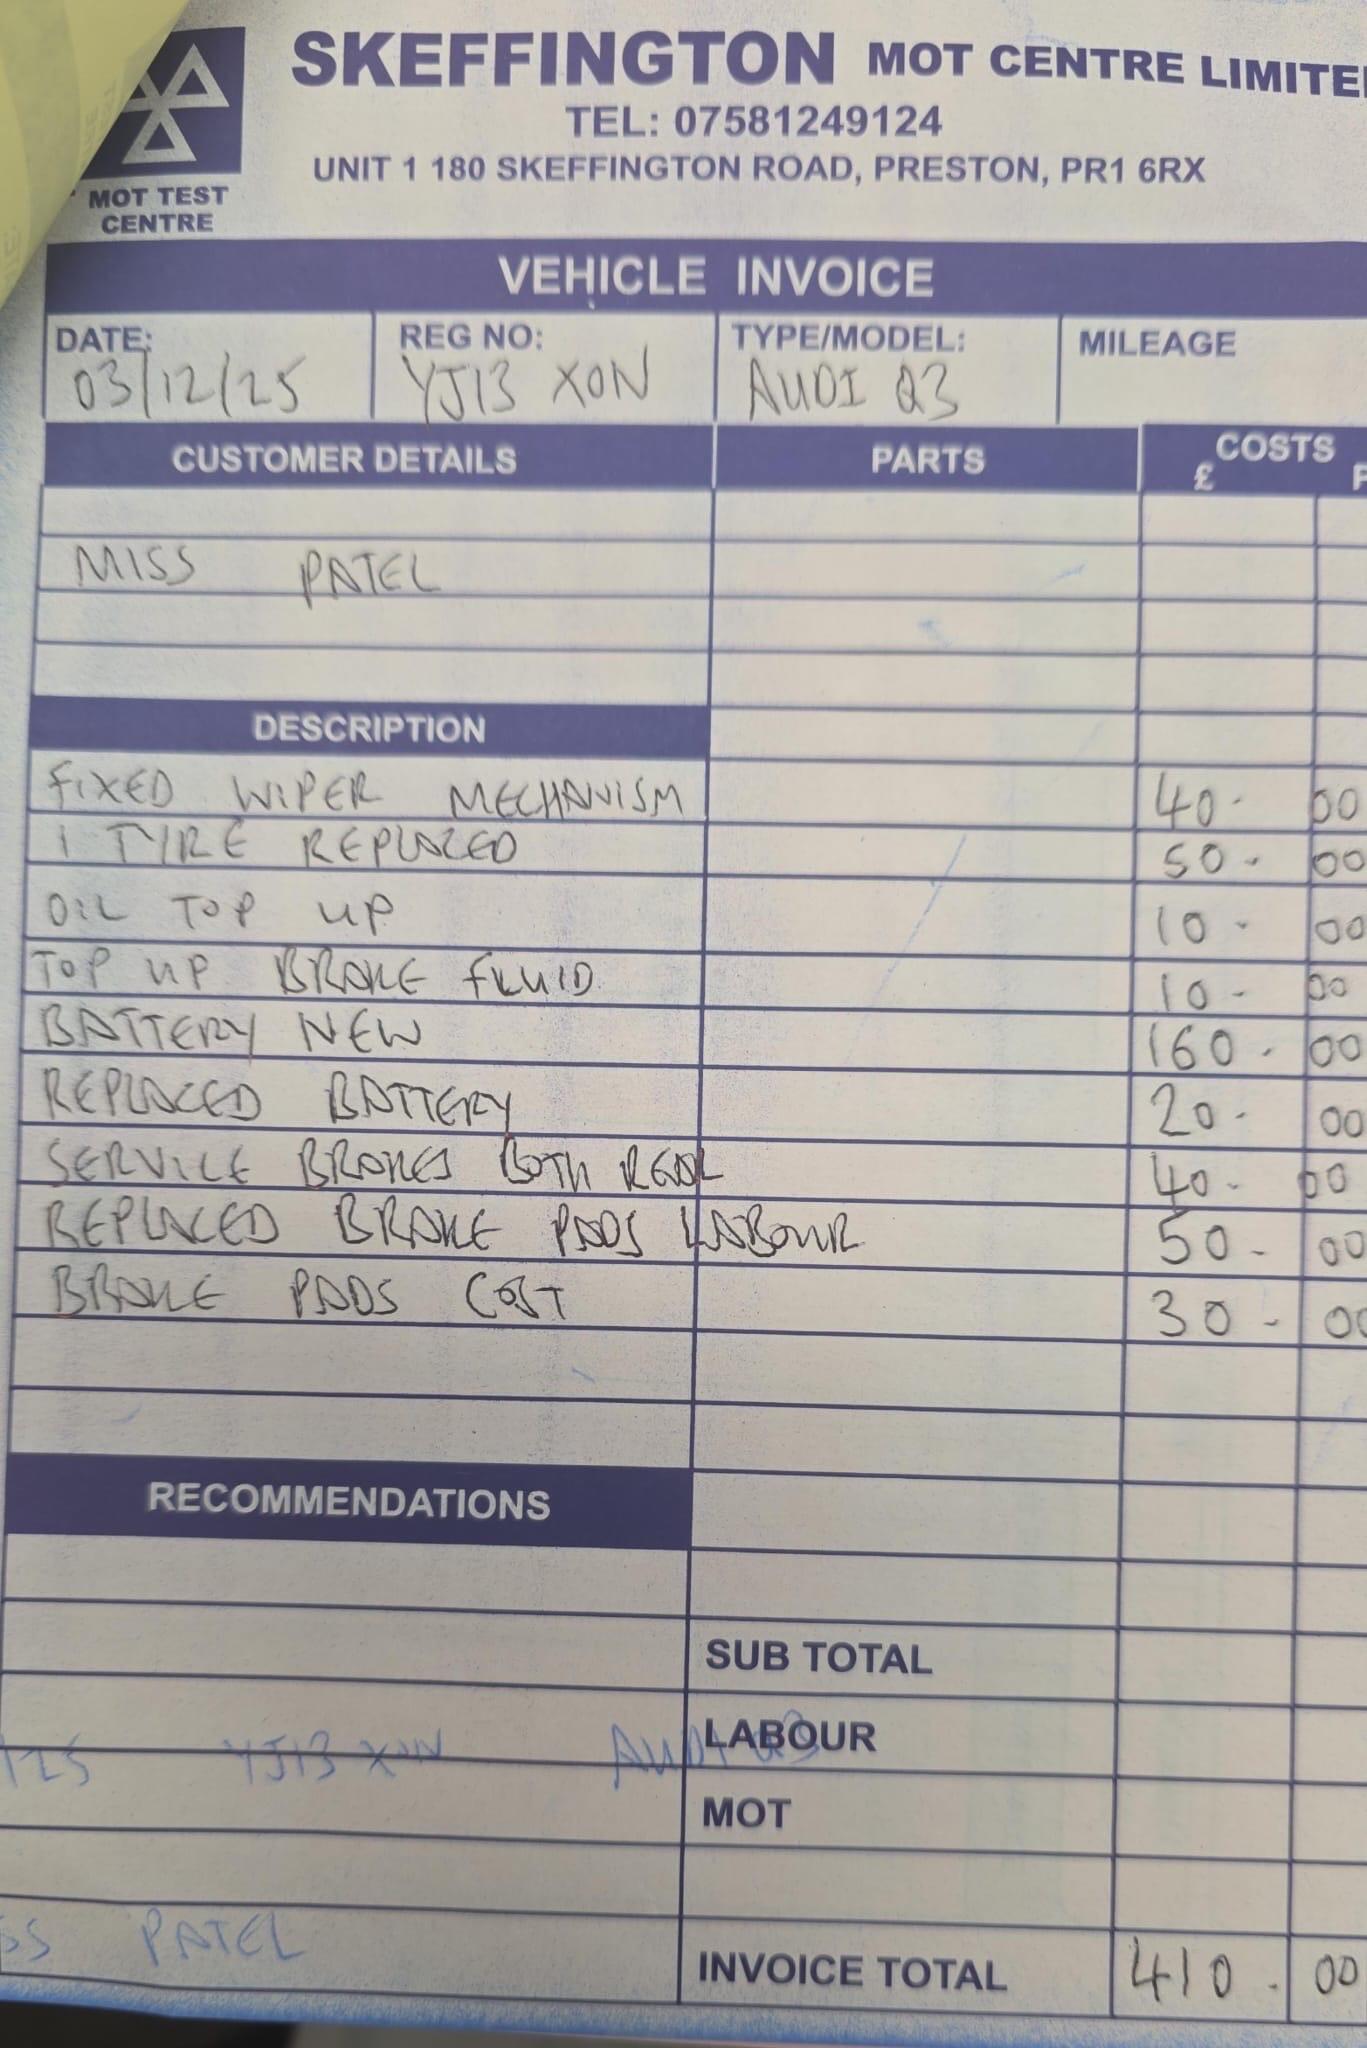 SKEFFINGTON MOT CENTRE LIMITE
TEL: 07581249124
UNIT 1 180 SKEFFINGTON ROAD, PRESTON, PR1 6RX
MOT TEST
CENTRE
VEHICLE INVOICE
DATE: REG NO: TYPE/MODEL: MILEAGE
03/12/25 YJ13 XON AUDI Q3
CUSTOMER DETAILS PARTS COSTS
£ P
MISS PATEL
DESCRIPTION
FIXED WIPER MECHANISM 40. 00
1 TYRE REPLACED 50. 00
OIL TOP UP 10. 00
TOP UP BRAKE FLUID 10. 00
BATTERY NEW 160. 00
REPLACED BATTERY 20. 00
SERVICE BRAKES BOTH REAR 40. 00
REPLACED BRAKE PADS LABOUR 50. 00
BRAKE PADS COST 30. 00
RECOMMENDATIONS
SUB TOTAL
LABOUR
125 YJ13 XON AUDI Q3
MOT
SS PATEL
INVOICE TOTAL 410. 00